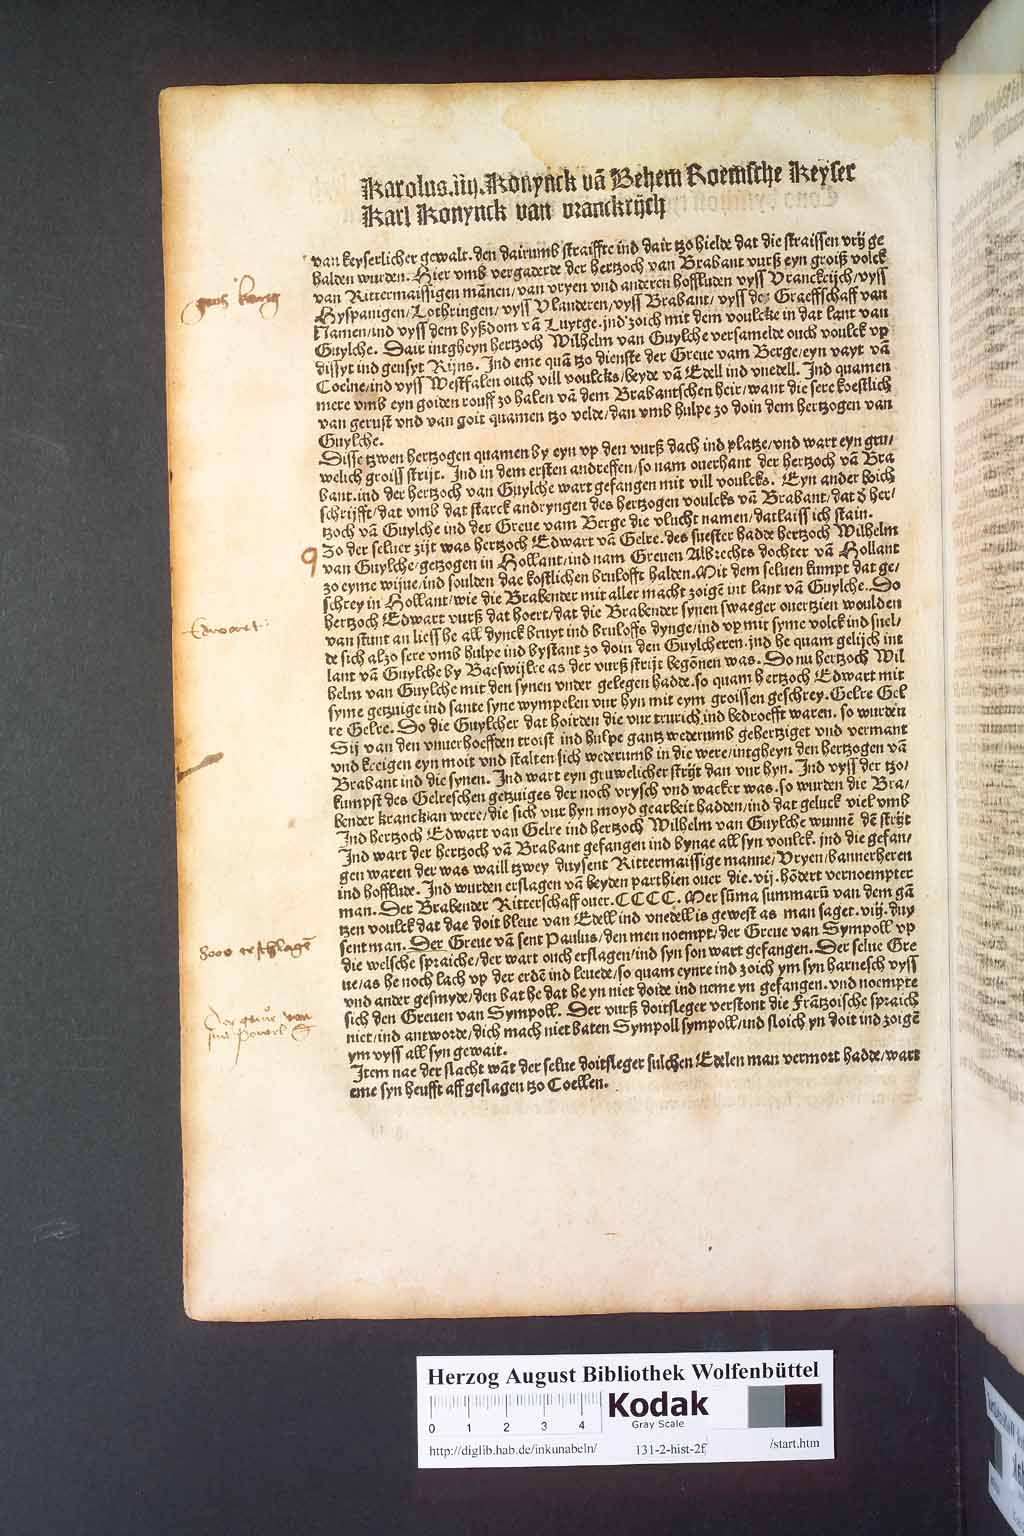 Karolus.iiij.Konynck vā Behem Roemsche Keyser
Karl Konynck van vranckrijch
van keyserlicher gewalt. den dairumb straiffte ind dair tzo hielde dat die straissen vrij ge
halden wurden. Hier vmb vergaderde der hertzoch van Brabant vurß eyn groiß volck
van Rittermaissigen mānen/van vryen vnd anderen hoffluden vyss Vranckrijch/vyss
Hyspanigen/Lothringen/vyss Vlanderen/vyss Brabant/vyss der Graeffschaff van
Namen/ind vyss dem byßdom vā Luytge. jnd zoich mit dem voulcke in dat lant van
Guylche. Dair intgheyn hertzoch Wilhelm van Guylche versamelde ouch voulck vp
dissyt ind gensyt Rijns. Ind eme quā tzo dienste der Greue vam Berge/eyn vayt vā
Coelne/ind vyss Westfalen ouch vill voulcks/beyde vā Edell ind vnedell. Ind quamen
mere vmb eyn goiden rouff zo halen vā dem Brabantschen heir/want die sere koestlich
van gerust vnd van goit quamen tzo velde/dan vmb hulpe zo doin dem hertzogen van
Guylche.
Disse tzwen hertzogen quamen by eyn vp den vurß dach ind platze/vnd wart eyn gru/
welich groiss strijt. Ind in dem ersten andreffen/so nam ouerhant der hertzoch vā Bra
bant. ind der hertzoch van Guylche wart gefangen mit vill voulcks. Eyn ander boich
schrijfft/dat vmb dat starck andryngen des hertzogen voulcks vā Brabant/dat d' her/
tzoch vā Guylche ind der Greue vam Berge die vlucht namen/dat laiss ich stain.
Zo der seluer zijt was hertzoch Edwart vā Gelre. des suester hadde hertzoch Wilhelm
van Guylche/getzogen in Hollant/ind nam Greuen Albrechts dochter vā Hollant
zo eyme wijue/ind soulden dae kostlichen brulofft halden. Mit dem seluen kumpt dat ge/
schrey in Hollant/wie die Brabender mit aller macht zoigē int lant vā Guylche. Do
hertzoch Edwart vurß dat hoert/dat die Brabender synen swaeger ouertzien woulden
van stunt an liess he all dynck bruyt ind bruloffs dynge/ind vp mit syme volck ind snel/
de sich alzo sere vmb hulpe ind bystant zo doin den Guylcheren. jnd he quam gelijch int
lant vā Guylche by Baeswijlre as der vurß strijt begōnen was. Do nu hertzoch Wil
helm van Guylche mit den synen vnder gelegen hadde. so quam hertzoch Edwart mit
syme getzuige ind sante syne wympelen vur hyn mit eym groissen geschrey. Gelre Gel
re Gelre. Do die Guylcher dat hoirden die vur trurich ind bedroefft waren. so wurden
Sij van den vnuerhoeffden troist ind hulpe gantz wederumb gehertziget vnd vermant
vnd kreigen eyn moit vnd stalten sich wederumb in die were/intgheyn den hertzogen vā
Brabant ind die synen. Ind wart eyn gruwelicher strijt dan vur hyn. Ind vyss der tzo/
kumpst des Gelreschen getzuiges der noch vrysch vnd wacker was. so wurden die Bra/
bender kranck an were/die sich vur hyn moyd gearbeit hadden/ind dat geluck viel vmb
Ind hertzoch Edwart van Gelre ind hertzoch Wilhelm van Guylche wunnē dē strijt
Ind wart der hertzoch vā Brabant gefangen ind bynae all syn voulck. jnd die gefan/
gen waren der was waill tzwey duysent Rittermaissige manne/Vryen/bannerheren
ind hofflude. Ind wurden erslagen vā beyden parthien ouer die. vij. hōdert vernoempter
man. Der Brabender Ritterschaff ouer. CCCC. Mer sūma summarū van dem gā
tzen voulck dat dae doit bleue van Edell ind vnedell is gewest as man saget. viij. duy
sent man. Der Greue vā sent Paulus/den men noempt/der Greue van Sympoll vp
die welsche spraiche/der wart ouch erslagen/ind syn son wart gefangen. Der selue Gre
ue/as he noch lach vp der erdē ind leuede/so quam eynre ind zoich ym syn harnesch vyss
vnd ander gesmyde/den bat he dat he yn niet doide ind neme yn gefangen. vnd noempte
sich den Greuen van Sympoll. Der vurß doitsleger verstont die Frātzoische spraich
niet/ind antworde/dich mach niet baten Sympoll sympoll/ind sloich yn doit ind zoigē
ym vyss all syn gewait.
Item nae der slacht wāt der selue doitsleger sulchen Edelen man vermort hadde/wart
eme syn heufft aff geslagen tzo Coellen.
Edwaret
8000 erschlagē
Der graue von
Herzog August Bibliothek Wolfenbüttel
0 1 2 3 4
Kodak
Gray Scale
http://diglib.hab.de/inkunabeln/ 131-2-hist-2f /start.htm